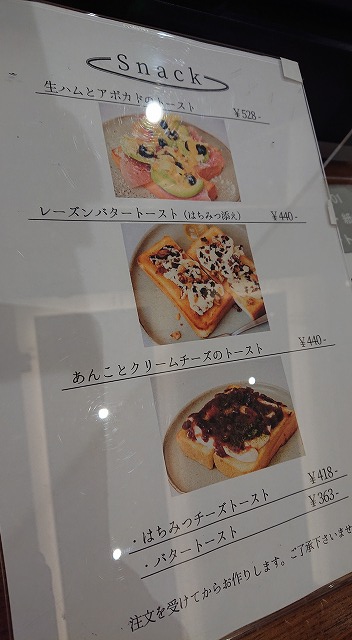 Snack
生ハムとアボカドのトースト ¥528-
レーズンバタートースト(はちみつ添え) ¥440-
あんことクリームチーズのトースト ¥440-
・はちみつチーズトースト ¥418-
・バタートースト ¥363-
注文を受けてからお作りします。ご了承下さいませ